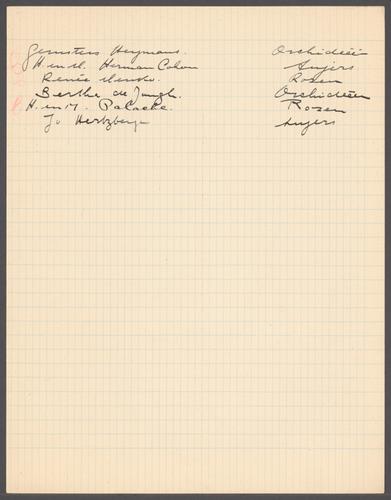 Gemsters Heymans. Orchideeën
H. en M. Herman Cohen Anjers
Renée Rozen
Berthe de Jongh. Orchideeën
H. en M. Palache. Rozen
Jo Hertzberger Anjers